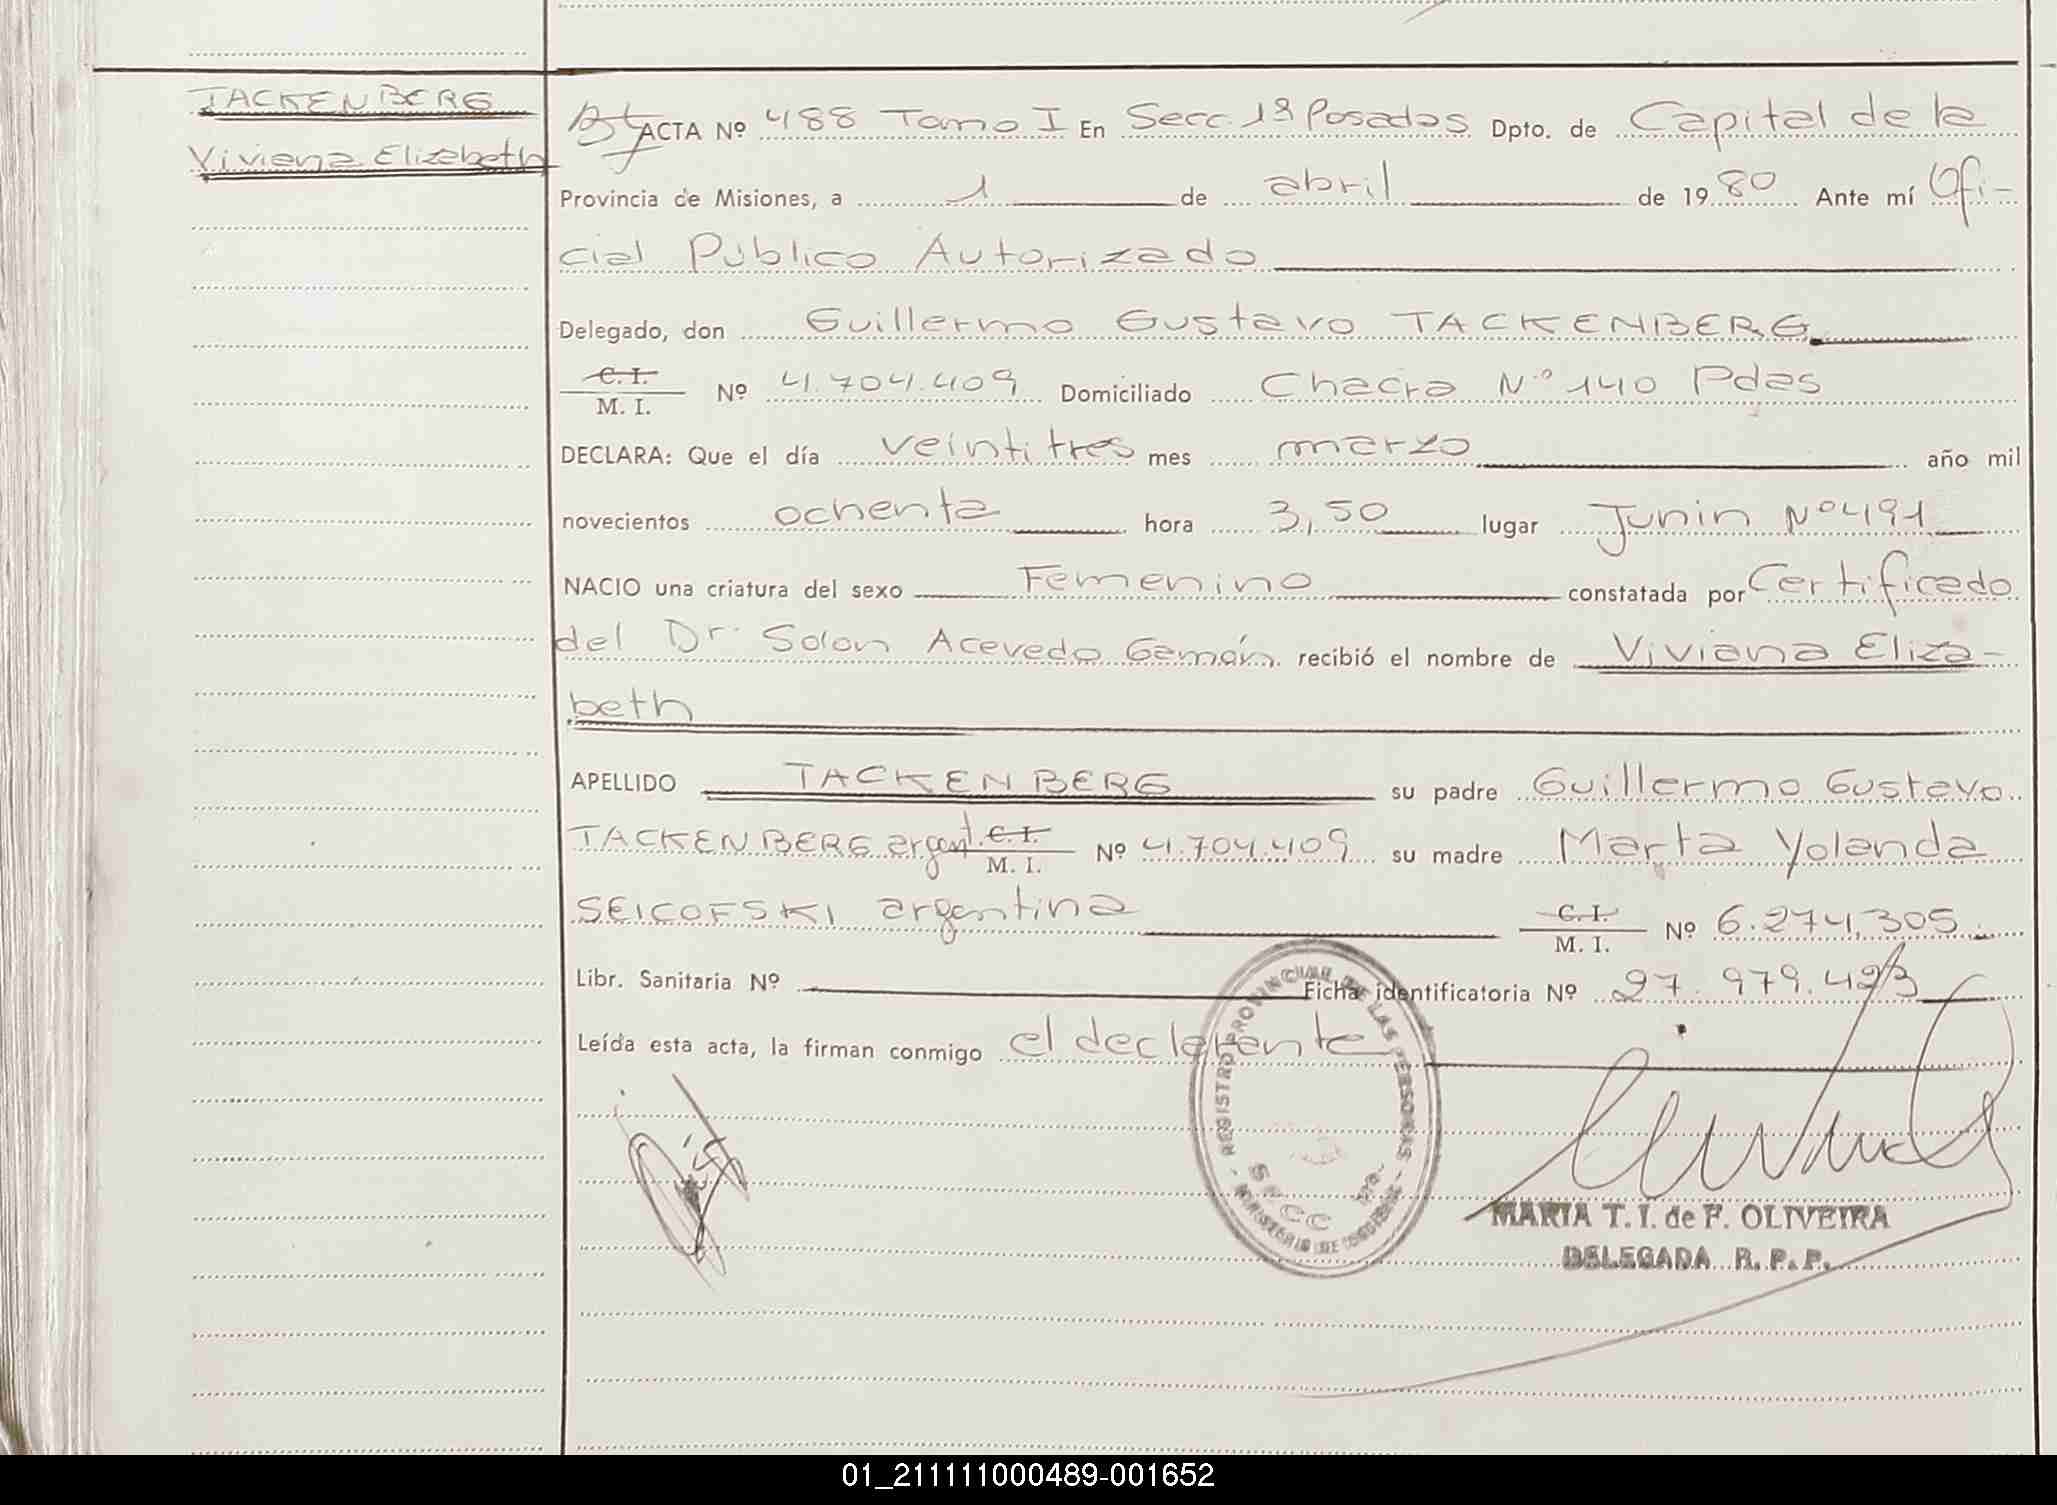 TACKENBERG
Viviana Elizabeth
ACTA Nº 488 Tomo I En Secc 1ª Posadas Dpto. de Capital de la
Provincia de Misiones, a 1 de abril de 1980 Ante mí Ofi-
cial Público Autorizado
Delegado, don Guillermo Gustavo TACKENBERG
C. I.
M. I. Nº 4.704.409 Domiciliado Chacra Nº 140 Pdas
DECLARA: Que el día veintitres mes marzo año mil
novecientos ochenta hora 3,50 lugar Junin Nº 491
NACIO una criatura del sexo Femenino constatada por Certificado
del Dr. Solon Acevedo Gamón recibió el nombre de Viviana Eliza-
beth
APELLIDO TACKENBERG su padre Guillermo Gustavo
TACKENBERG argent. C. I.
M. I. Nº 4.704.409 su madre Marta Yolanda
SEICOFSKI argentina C. I.
M. I. Nº 6.274.305
Libr. Sanitaria Nº Ficha identificatoria Nº 27.979.423
Leída esta acta, la firman conmigo el declarante
REGISTRO PROVINCIAL DE LAS PERSONAS
MINISTERIO DE GOBIERNO
SECC 1ra.
MARIA T. I. de F. OLIVEIRA
DELEGADA R. P. P.
01_211111000489-001652